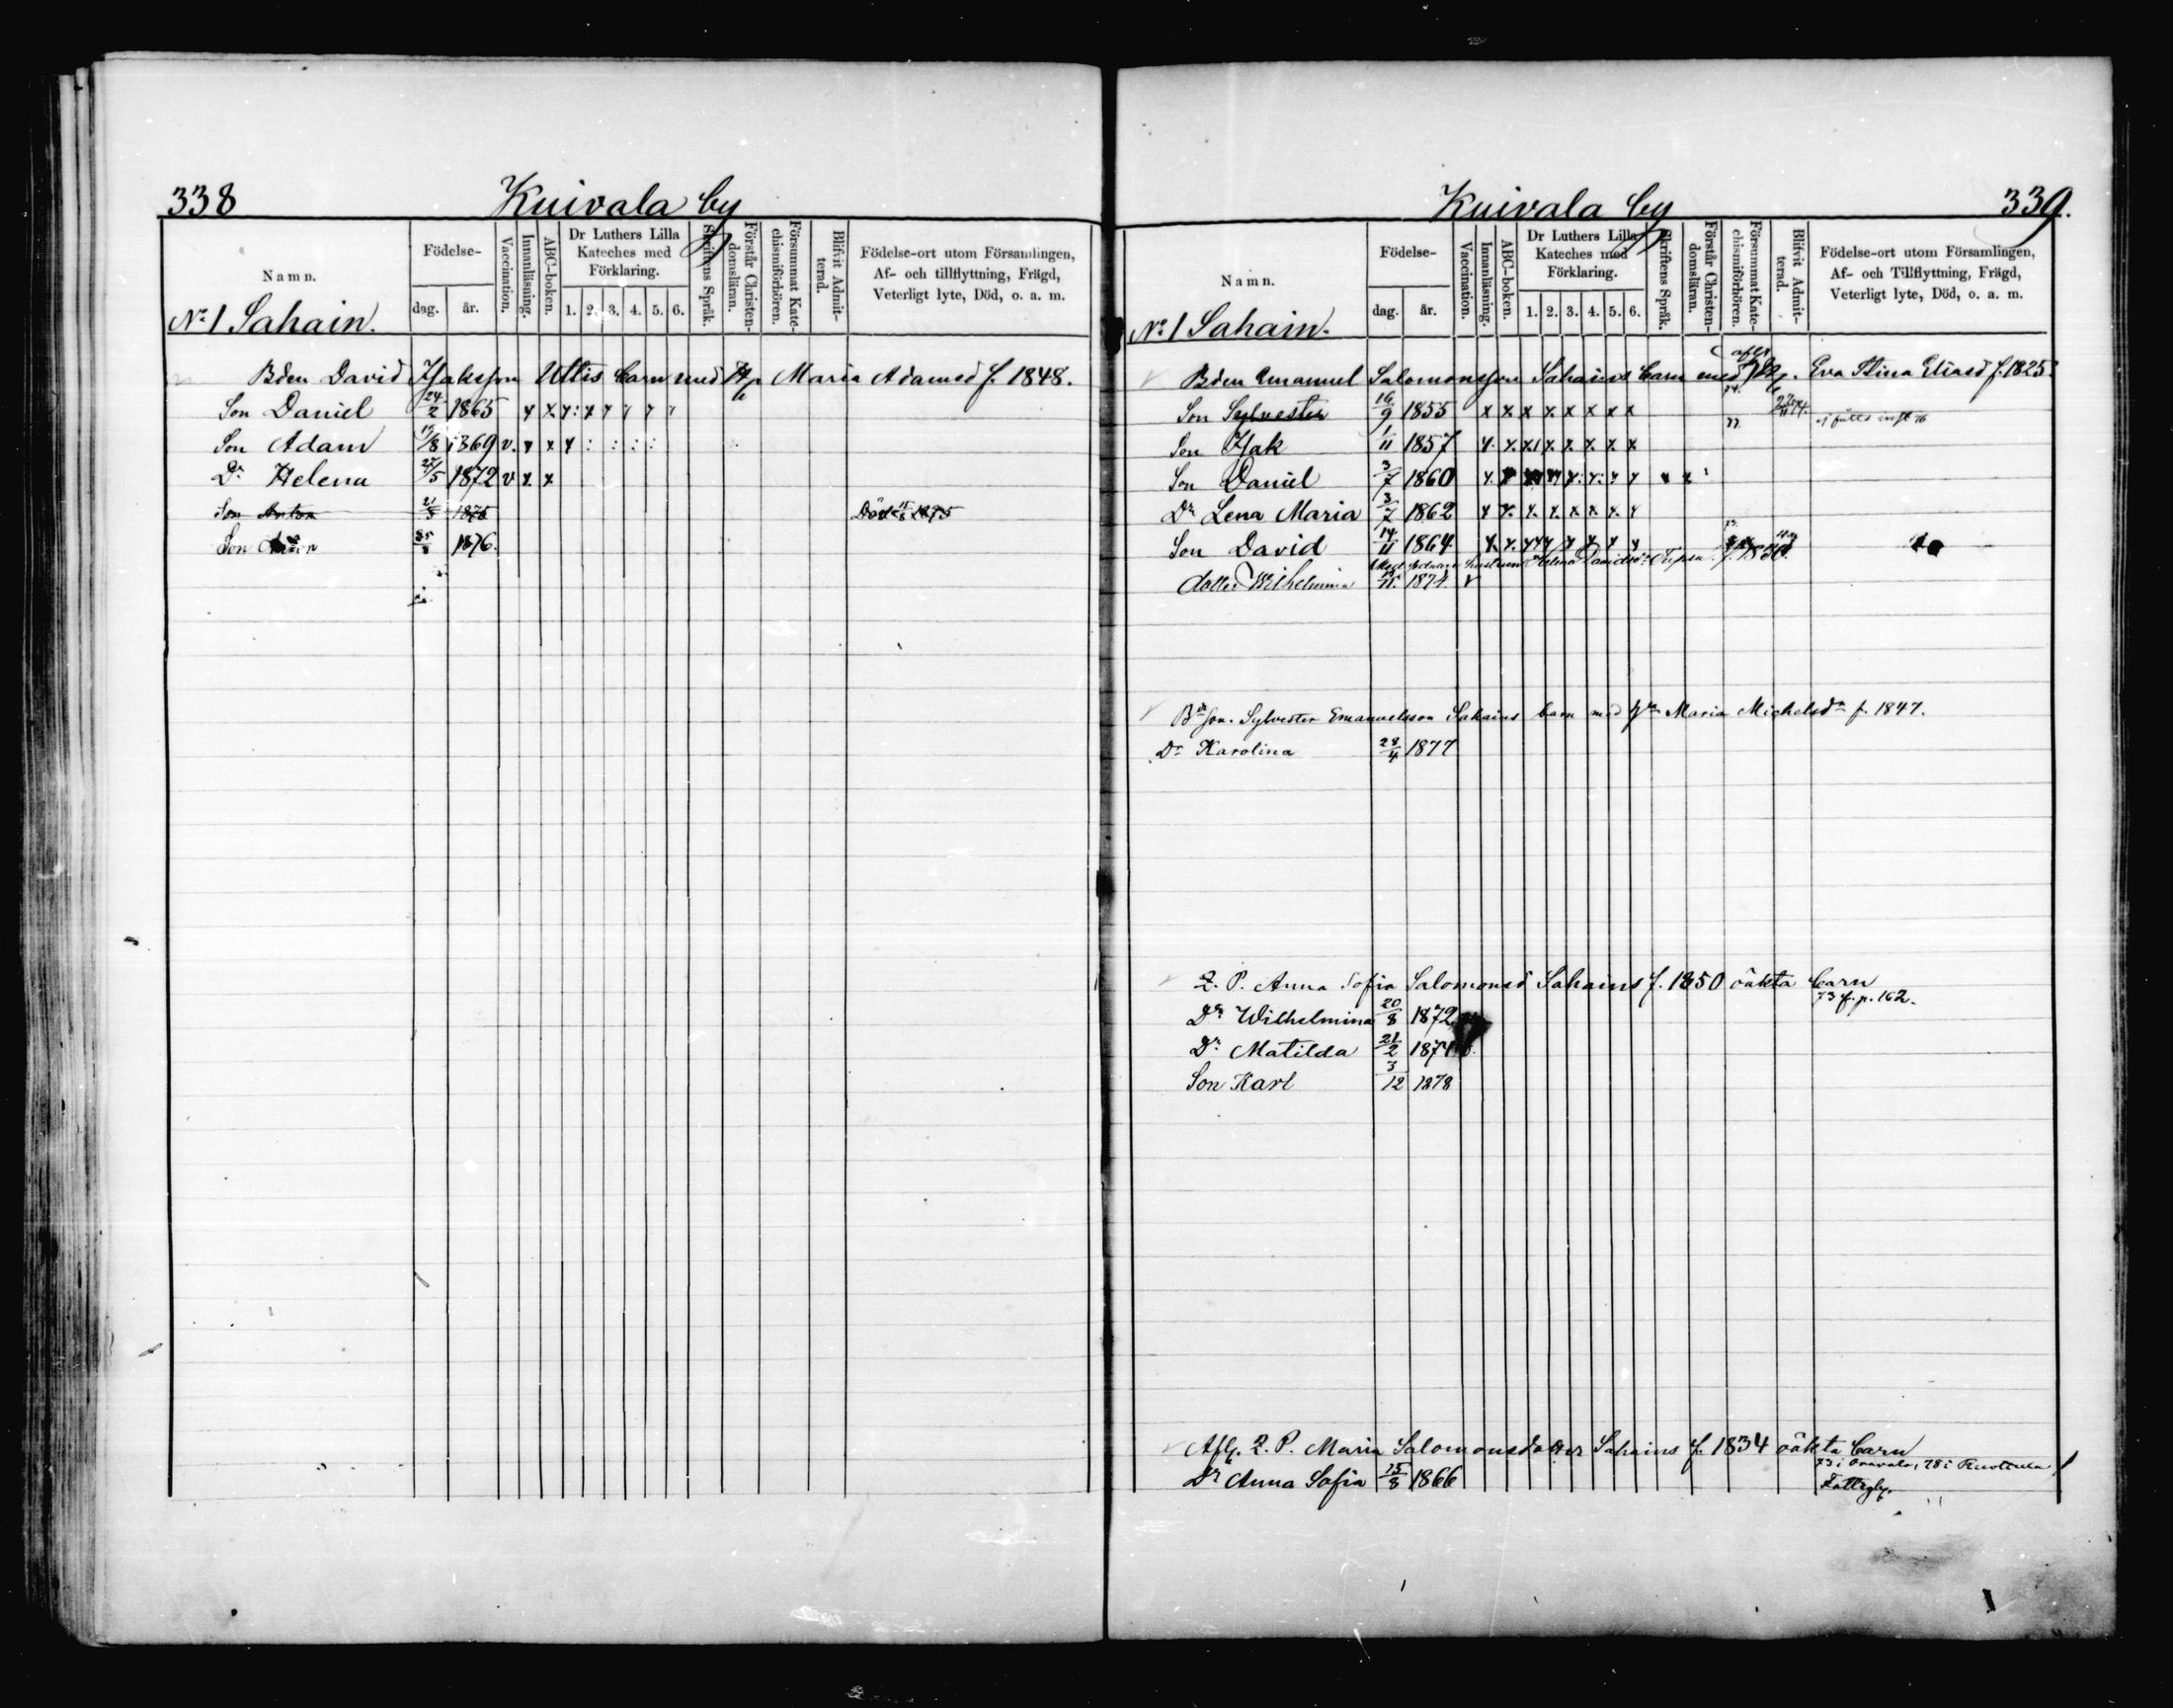 338 Kuivala by
Namn. Födelse- Vaccination. Innanläsning. ABC-boken. Dr Luthers Lilla Kateches med Förklaring. Skriftens Språk. Förstår Christendomsläran. Försummat Katechismiförhören. Blifvit Admitterad. Födelse-ort utom Församlingen, Af- och tillflyttning, Frägd, Veterligt lyte, Död, o. a. m.
dag. år. 1. 2. 3. 4. 5. 6.
No 1 Sahain.
Bden David Isaksson Uttis barn med Maria Adamsd f. 1848.
Son Daniel 24/2 1865 x x x: x x x x x
Son Adam 19/8 1869 v. x x x : : : :
Dr Helena 27/5 1872 v x x
Son Anton 21/5 1875 Död 15/8 1875
Son 25/8 1876.
Kuivala by 339.
Namn. Födelse- Vaccination. Innanläsning. ABC-boken. Dr Luthers Lilla Kateches med Förklaring. Skriftens Språk. Förstår Christendomsläran. Försummat Katechismiförhören. Blifvit Admitterad. Födelse-ort utom Församlingen, Af- och Tillflyttning, Frägd, Veterligt lyte, Död, o. a. m.
dag. år. 1. 2. 3. 4. 5. 6.
No 1 Sahain.
Bden Emanuel Salomonsson Sahains barn med Eva Stina Eliasd f. 1825.
Son Sylvester 16/9 1855 x x x x x x x x
Son Isak 1/11 1857 x x x x x x x x
Son Daniel 3/7 1860
Dr Lena Maria 3/7 1862 x x x x x x x x
Son David 14/11 1864
hustrun Helena Davidsdr f. 1830.
dotter Wilhelmina 1874. v
Bdeson. Sylvester Emanuelsson Sahains barn med Maria Michelsdr f. 1847.
Dr Karolina 28/4 1877
I. P. Anna Sofia Salomonsd Sahains f. 1850 oäkta barn
73 f. p. 162.
Dr Wilhelmina 20/8 1872
Dr Matilda 21/2 1874
Son Karl 3/12 1878
Afl. I. P. Maria Salomonsdotter Sahains f. 1834 oäkta barn
Dr Anna Sofia 15/8 1866